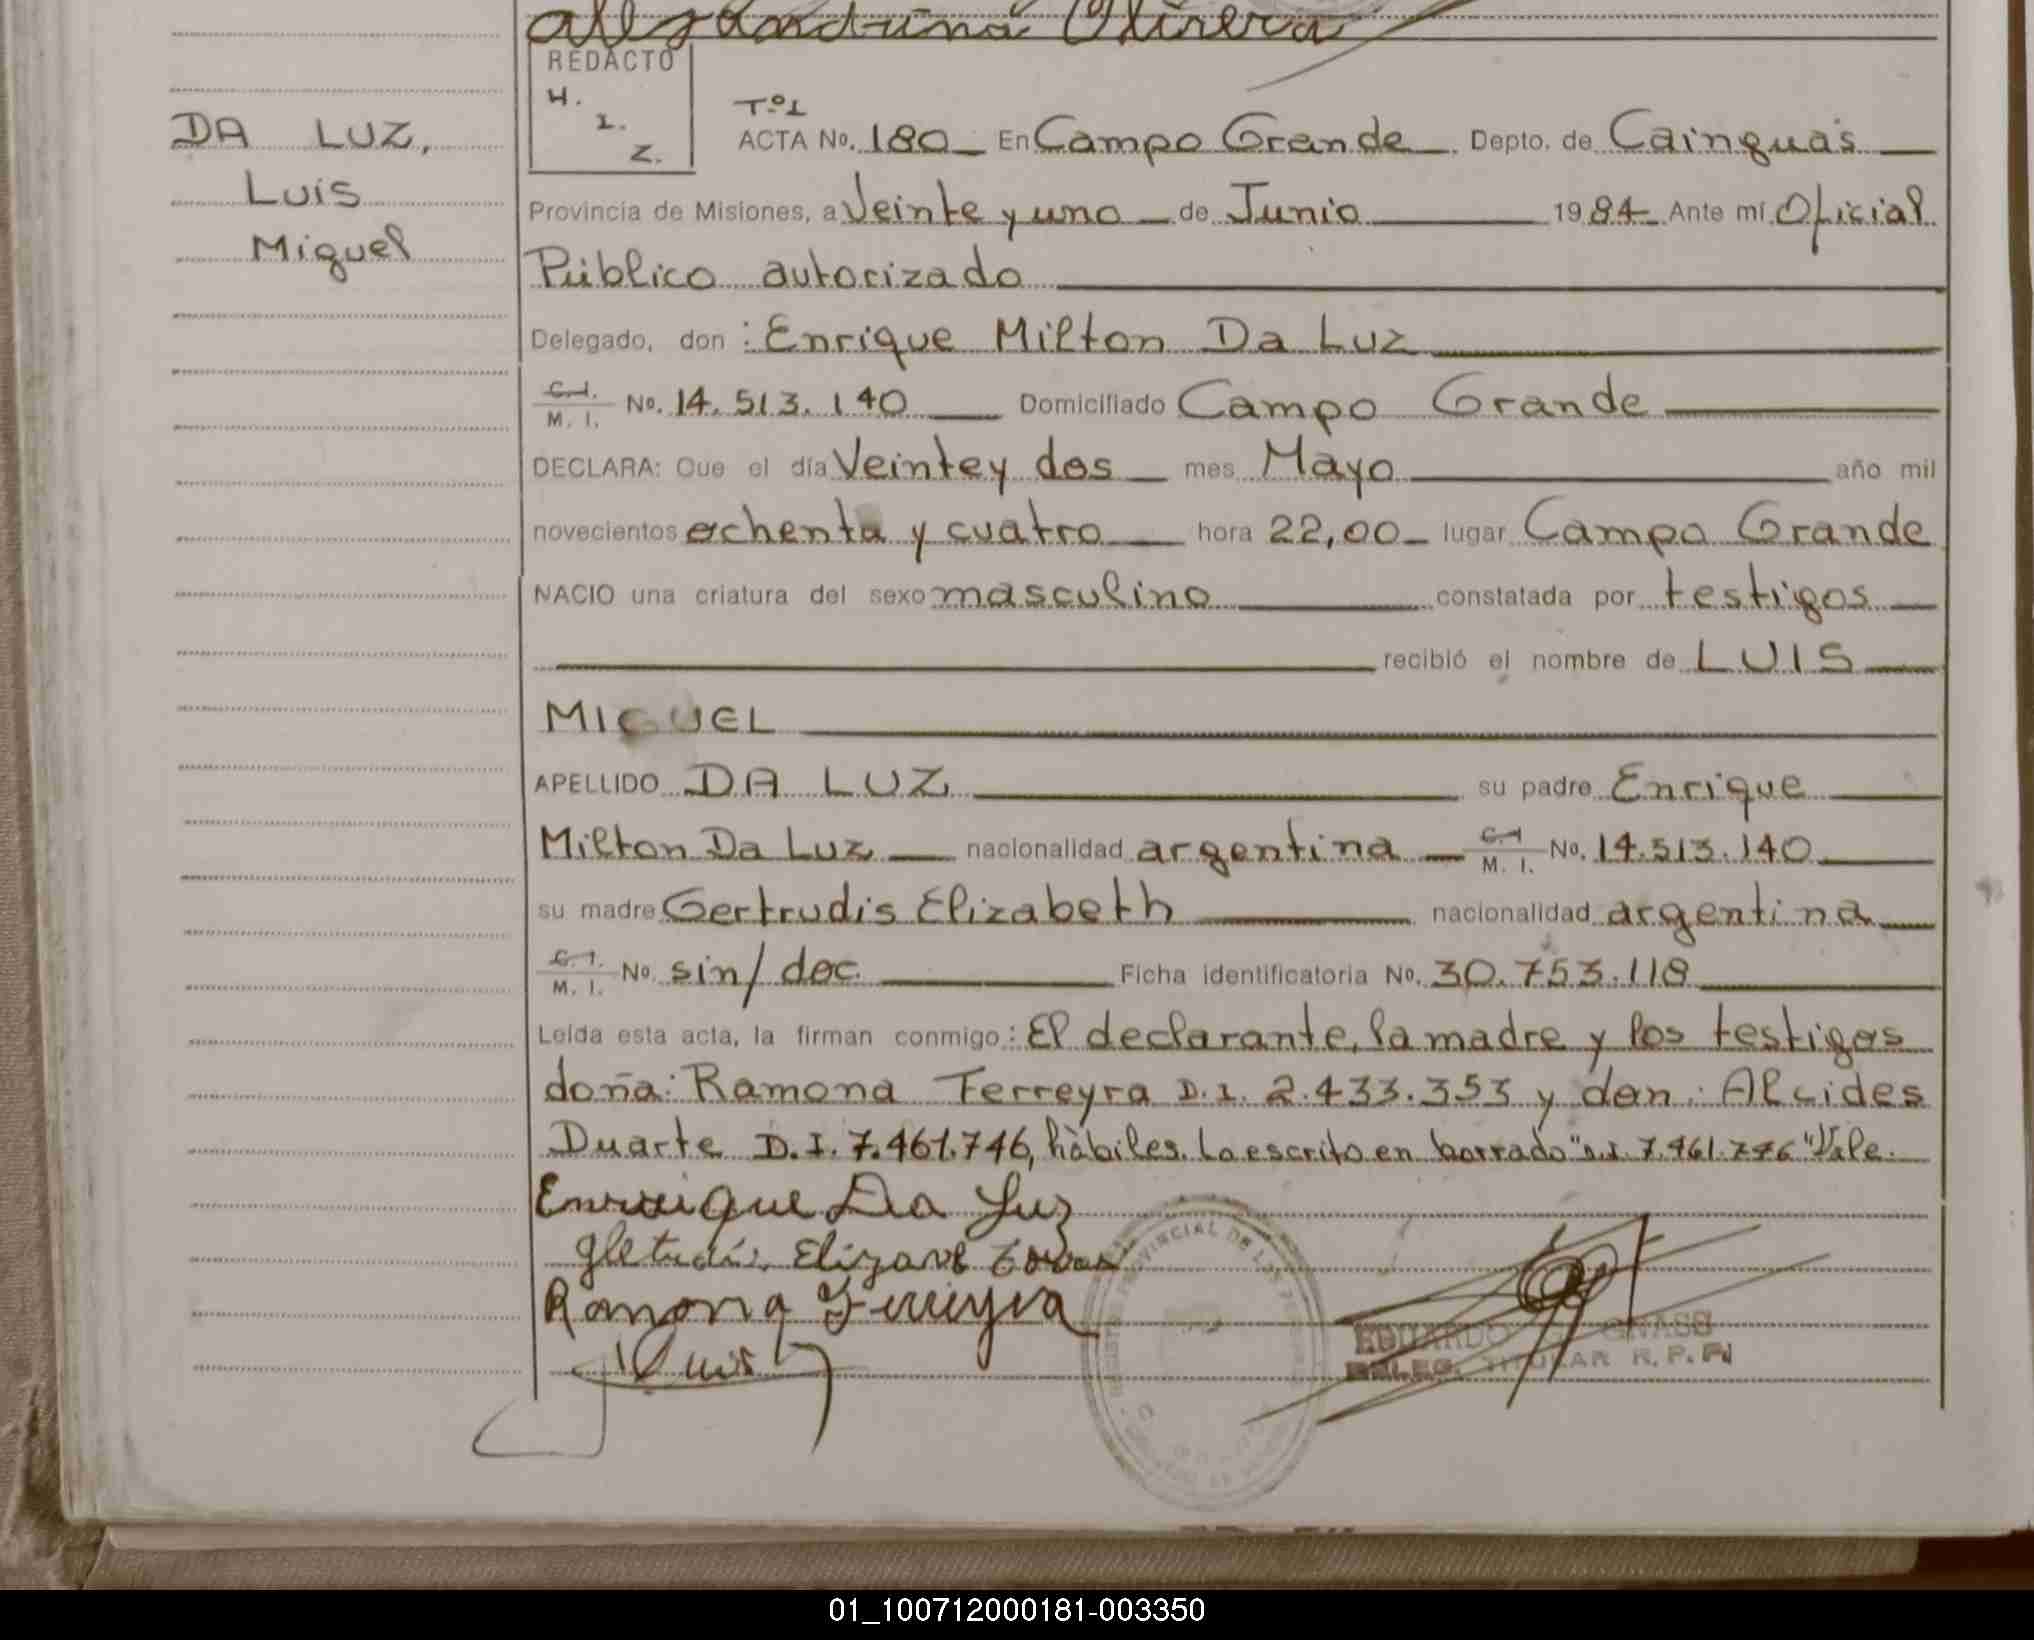 Alejandrina Olivera
REDACTO
H.
I.
Z.
DA LUZ,
Luis
Miguel
Tº1
ACTA No. 180 En Campo Grande Depto. de Cainguás
Provincia de Misiones, a Veinte y uno de Junio 1984 Ante mí Oficial
Público autorizado
Delegado, don: Enrique Milton Da Luz
C.I. M. I. No. 14.513.140 Domiciliado Campo Grande
DECLARA: Que el día Veinte y dos mes Mayo año mil
novecientos ochenta y cuatro hora 22,00 lugar Campo Grande
NACIO una criatura del sexo masculino constatada por testigos
recibió el nombre de LUIS
MIGUEL
APELLIDO DA LUZ su padre Enrique
Milton Da Luz nacionalidad argentina C.I M. I. No. 14.513.140
su madre Gertrudis Elizabeth nacionalidad argentina
C.I. M. I. No. sin/doc. Ficha identificatoria No. 30.753.118
Leída esta acta, la firman conmigo: El declarante, la madre y los testigos
doña: Ramona Ferreyra D.I. 2.433.353 y don: Alcides
Duarte D.I. 7.461.746, hàbiles. Lo escrito en borrado "D.I. 7.461.746" Vale.
Enrrique Da Luz
Elizabe
Ramona Ferreyra
PROVINCIAL DE LAS
EDUARDO GNASS
DELEG. TITULAR R. P. P.
01_100712000181-003350